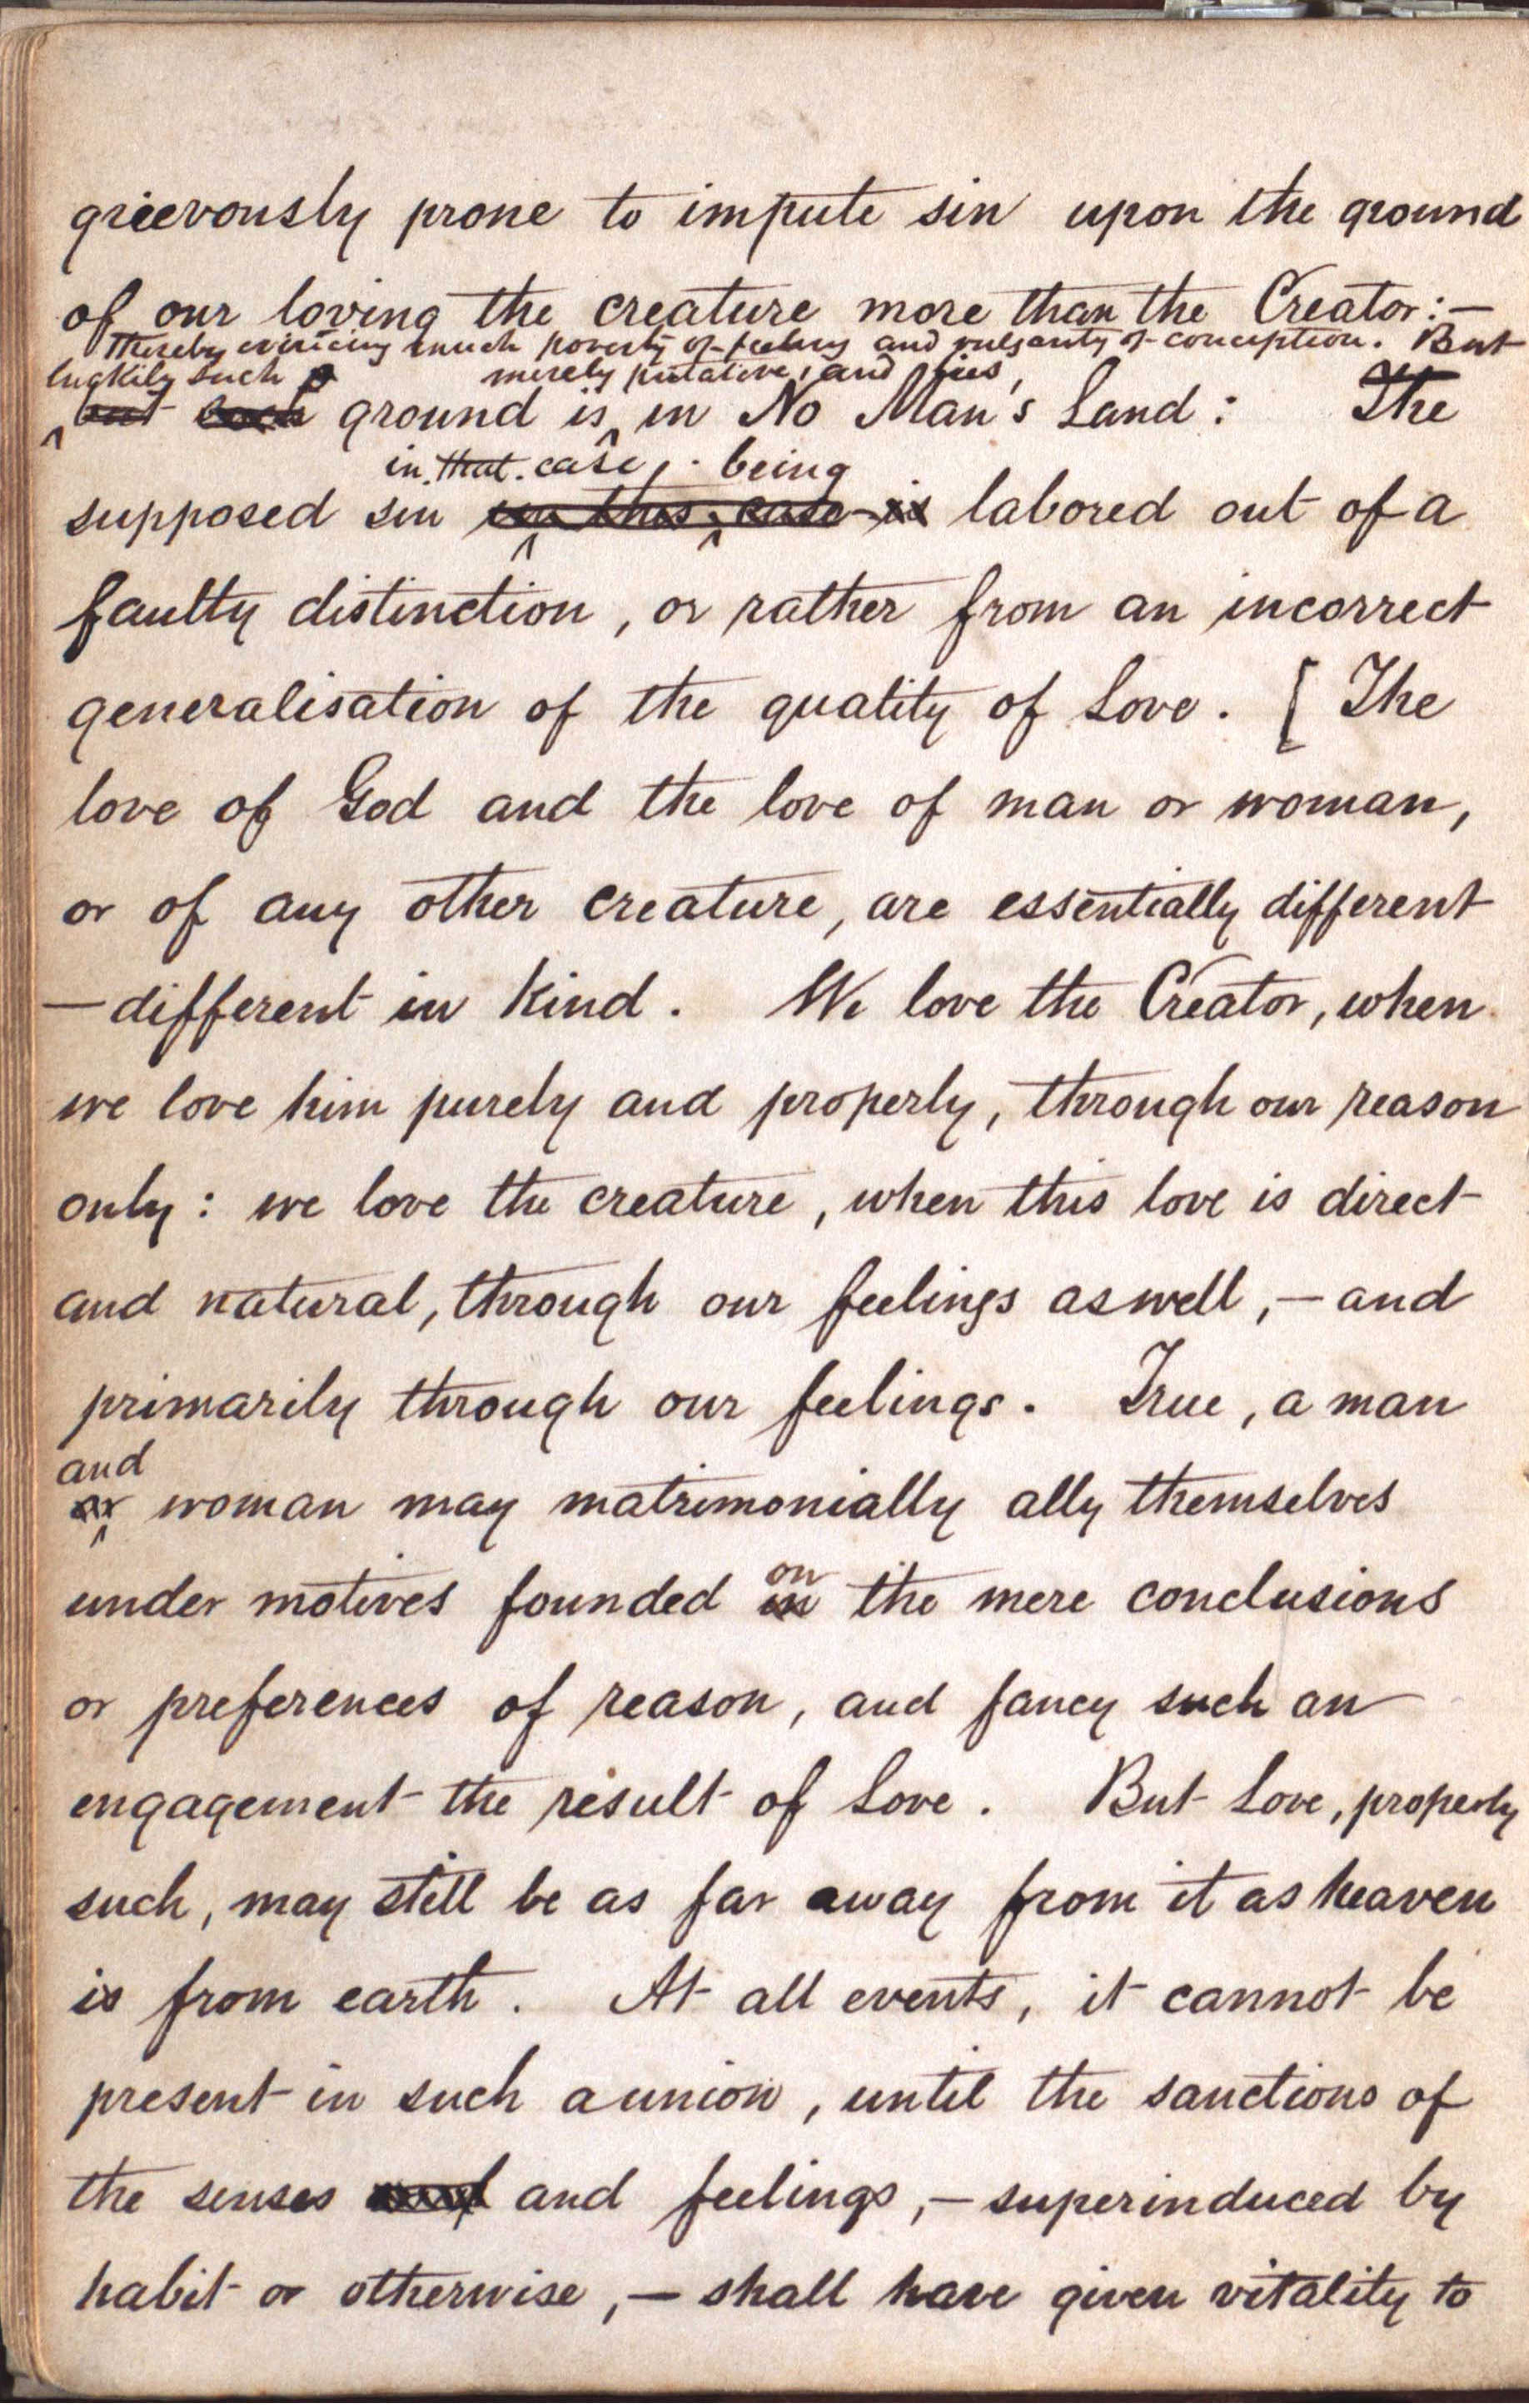 grievously prone to impute sin upon the ground
of our loving the creature more than the Creator:—
thereby evincing much poverty of feeling and vulgarity of conception. But
luckily such merely putative, and lies,
but such ground is in No Man's Land: The
in that case, being
supposed sin in this case is labored out of a
faulty distinction, or rather from an incorrect
generalisation of the quality of Love. [The
love of God and the love of man or woman,
or of any other creature, are essentially different
—different in kind. We love the Creator, when
we love him purely and properly, through our reason
only: we love the creature, when this love is direct
and natural, through our feelings as well,—and
primarily through our feelings. True, a man
and
or woman may matrimonially ally themselves
on
under motives founded in the mere conclusions
or preferences of reason, and fancy such an
engagement the result of Love. But Love, properly
such, may still be as far away from it as heaven
is from earth. At all events, it cannot be
present in such a union, until the sanctions of
the senses and feelings,—superinduced by
habit or otherwise,—shall have given vitality to